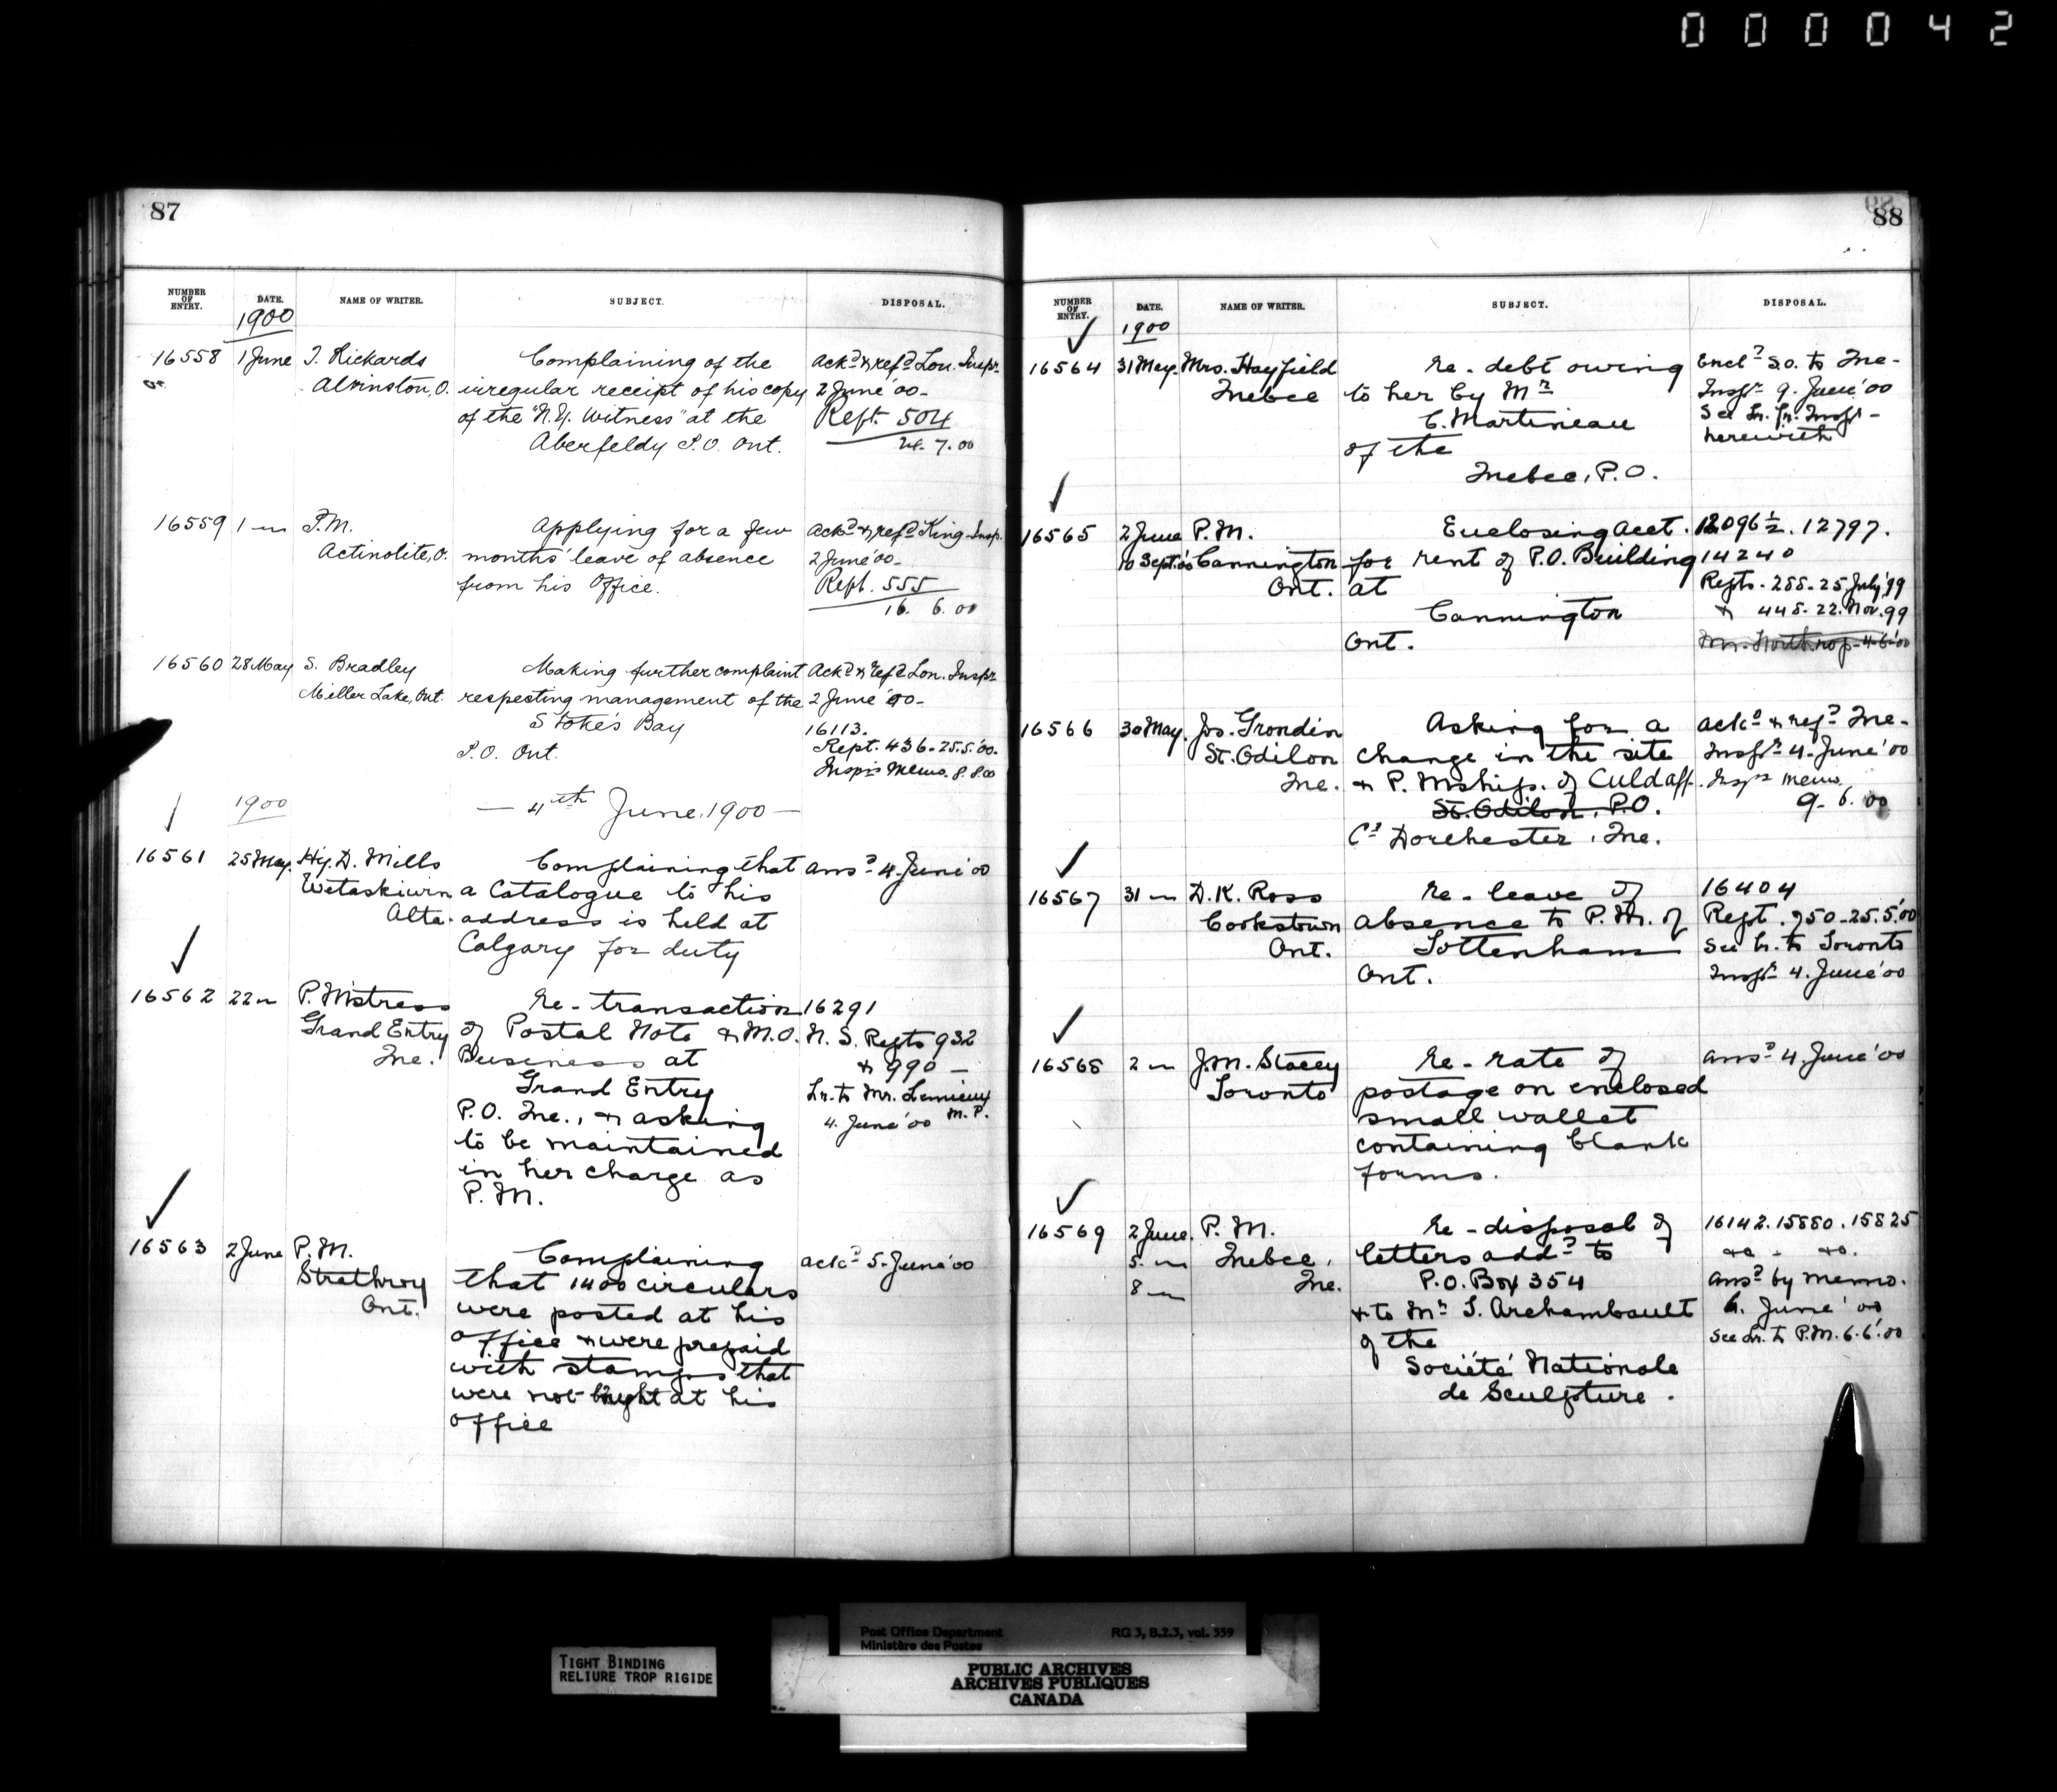 000042
87
NUMBER OF ENTRY. DATE. NAME OF WRITER. SUBJECT. DISPOSAL.
1900
16558 1 June T. Rickards Complaining of the Ackd & refd Lon. Inspr.
Alvinston, O. irregular receipt of his copy 2 June '00-
of the "N.Y. Witness" at the Rept. 504
Aberfeldy P.O. Ont. 24. 7. 00
16559 1 " P.M. Applying for a few Ackd & refd King. Insp.
Actinolite, O. months' leave of absence 2 June '00-
from his Office. Rept. 555
16. 6. 00
16560 28 May S. Bradley Making further complaint Ackd & refd Lon. Inspr
Miller Lake, Ont. respecting management of the 2 June '00-
Stokes Bay 16113.
P.O. Ont. Rept. 436-25.5.'00.
Inspr's Memo. 8.8.00
1900 — 4th June, 1900 —
16561 25 May. Hy. D. Mills Complaining that ansd 4. June '00
Wetaskiwin a Catalogue to his
Alta. address is held at
Calgary for duty
16562 22 " P. Mistress Re- transaction 16291
Grand Entry of Postal Note & M.O. N. S. Repts 932
Que. Business at & 990 —
Grand Entry Lr. to Mr. Lemieux M.P.
P.O. Que., & asking 4. June '00
to be maintained
in her charge as
P.M.
16563 2 June P.M. Complaining ackd 5. June '00
Strathroy that 1400 circulars
Ont. were posted at his
office & were prepaid
with stamps that
were not bought at his
office
88
NUMBER OF ENTRY. DATE. NAME OF WRITER. SUBJECT. DISPOSAL.
1900
16564 31 May. Mrs. Hayfield Re- debt owing Encd S.O. to Que-
Quebec to her by Mr Inspr 9. June '00
C. Martineau See Lr. fr. Inspr -
of the herewith
Quebec, P.O.
16565 2 June P.M. Enclosing acct. 12096½. 12797.
10 Sept. '00 Cannington for rent of P.O. Building 14240
Ont. at Repts. 255-25 July '99
Cannington & 448. 22. Nov. 99
Ont. Mr. Northrop-4-6-'00
16566 30 May. Jos. Grondin Asking for a ackd & refd Que-
St. Odilon change in the site Inspr 4. June '00
Que. & P. Mship. of Culdaff. Inspr memo.
St. Odilon, P.O. 9. 6. 00
Co Dorchester, Que.
16567 31 " D.K. Ross Re- leave of 16404
Cookstown absence to P.M. of Rept. 950-25.5.'00
Ont. Tottenham See Lr. to Toronto
Ont. Inspr 4. June '00
16568 2 " J.M. Stacey Re- rate of ansd 4. June '00
Toronto postage on enclosed
small wallet
containing blank
forms.
16569 2 June. P.M. Re- disposal of 16142. 15880. 15825
5. " Quebec, letters addd to &c - &c.
8 " Que. P.O. Box 354 ansd by memo.
& to Mr T. Archambault 6. June '00
of the See Lr. to P.M. 6.6.'00
Société Nationale
de Sculpture.
Post Office Department RG 3, B.2.3, vol. 559
Ministère des Postes
TIGHT BINDING
RELIURE TROP RIGIDE
PUBLIC ARCHIVES
ARCHIVES PUBLIQUES
CANADA